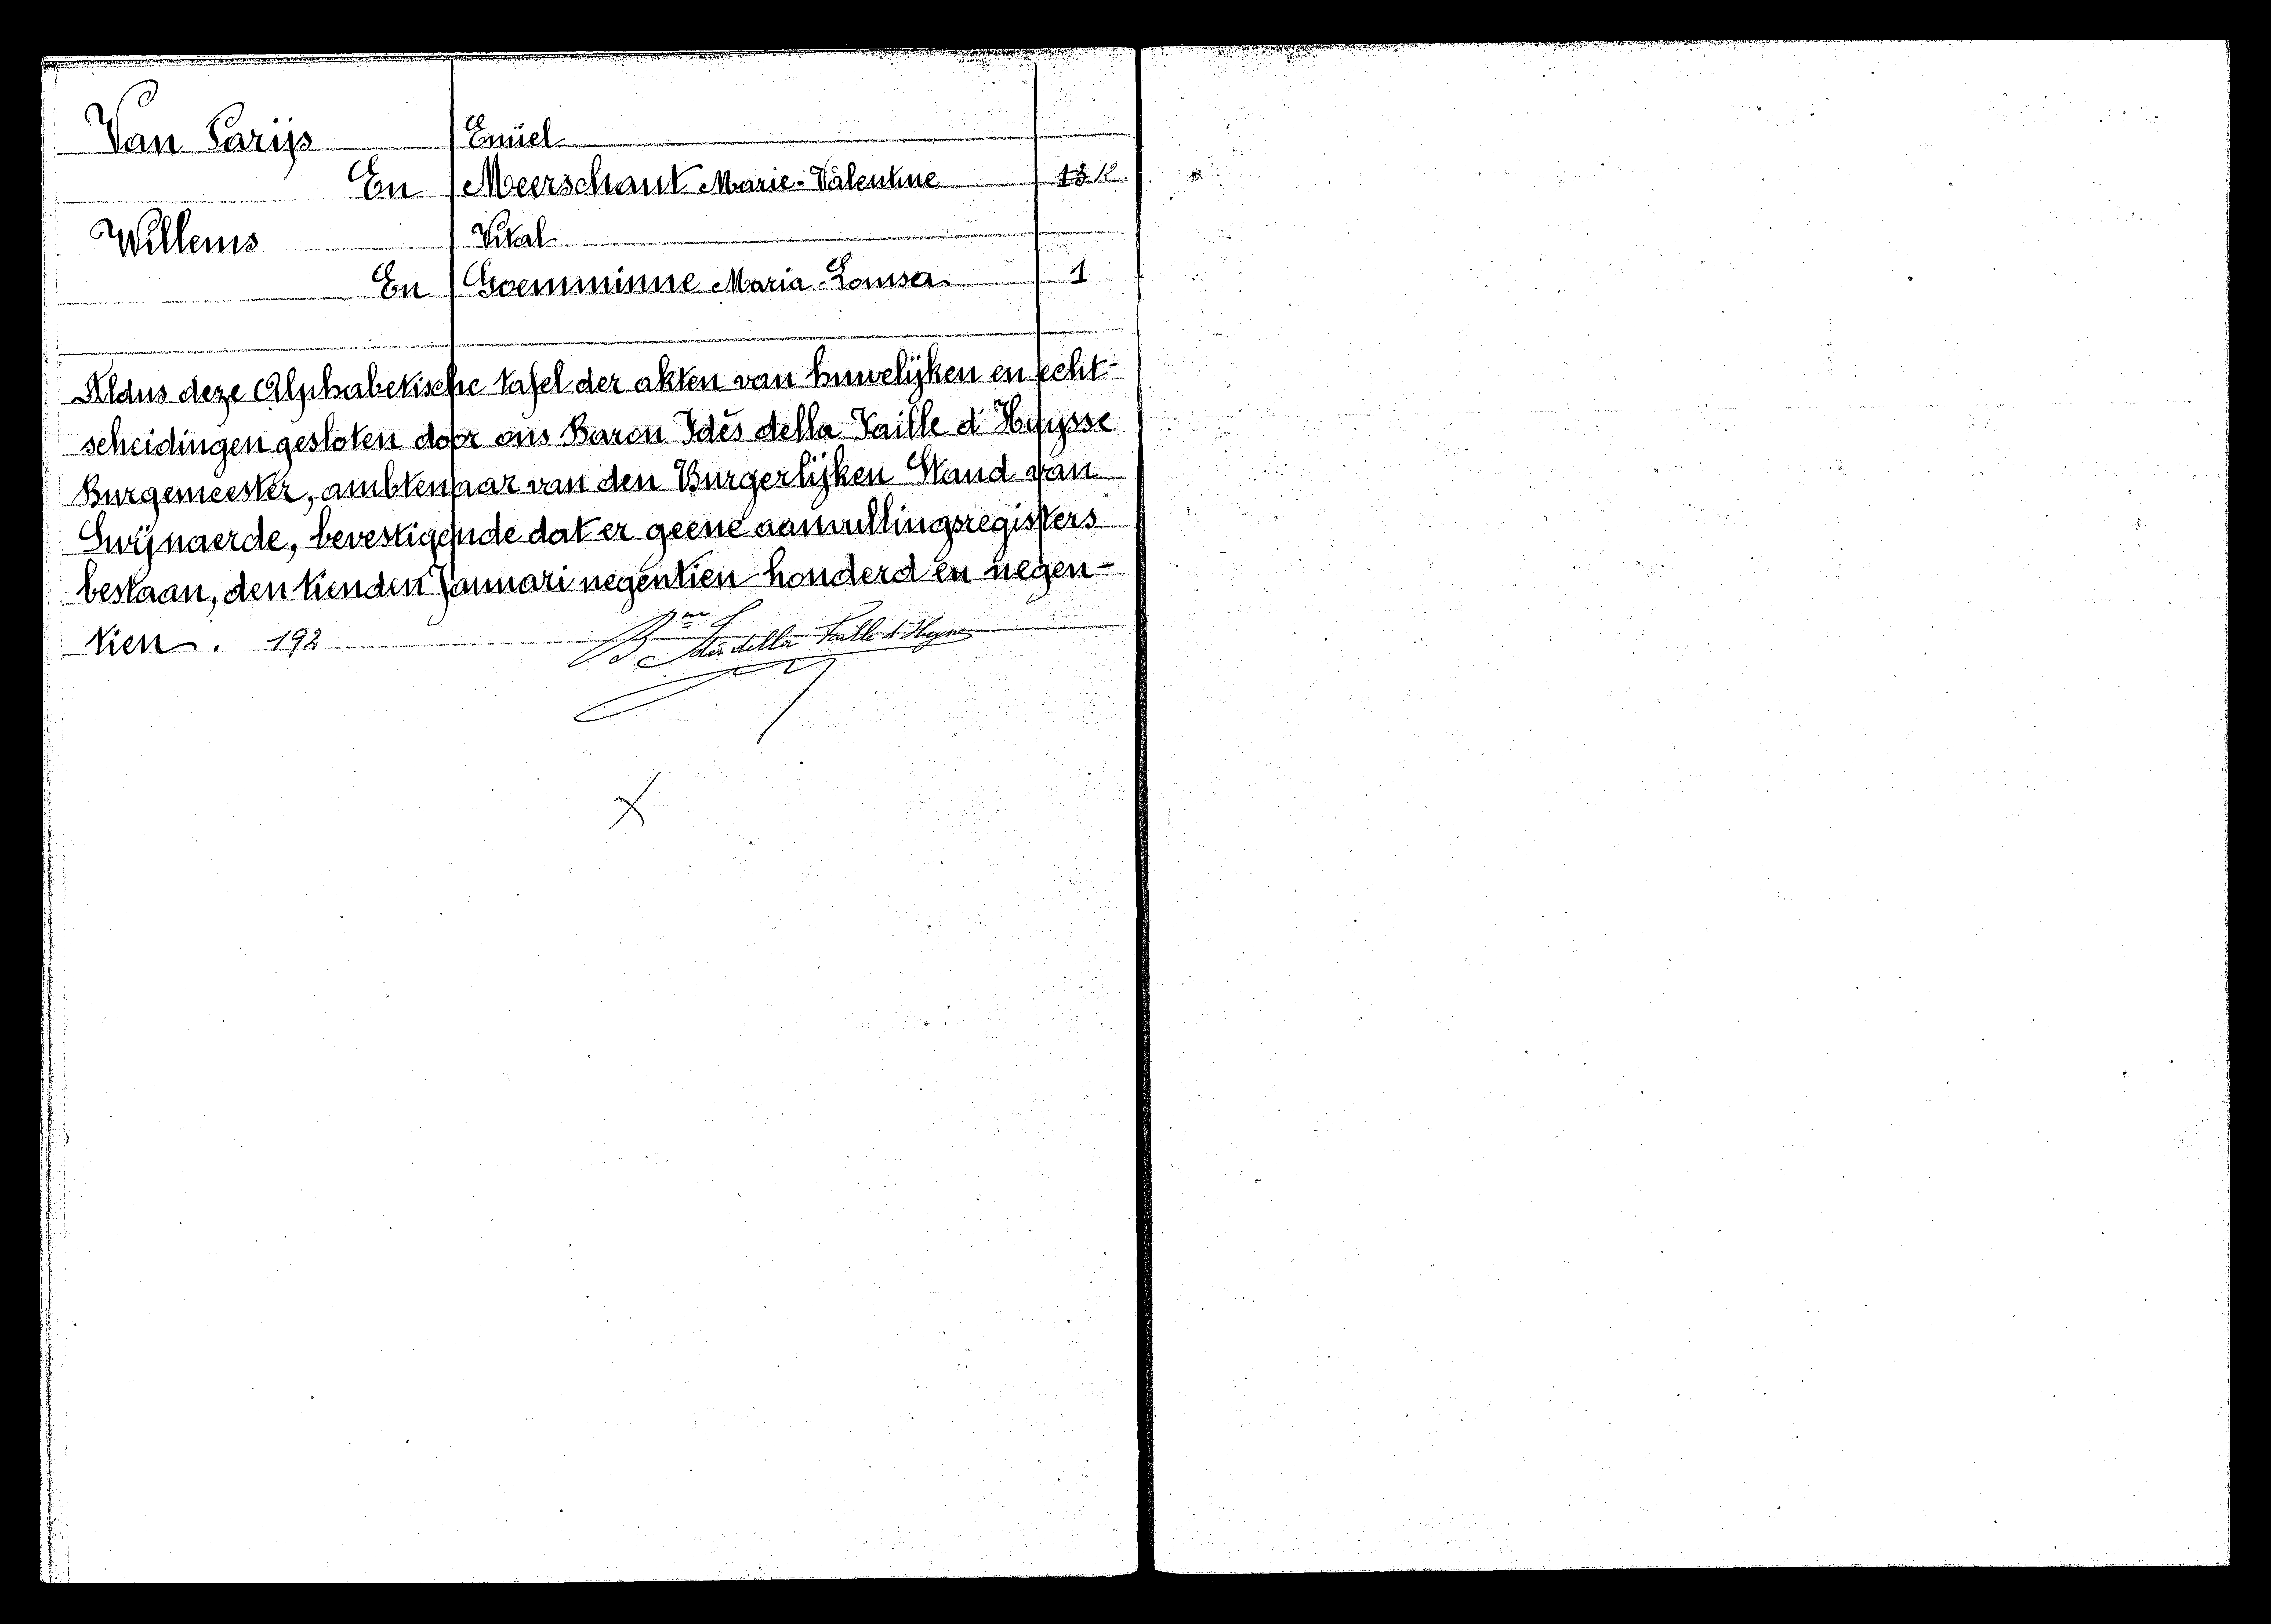 Van Parijs Emiel
En Meerschaut Marie-Valentine 13 12
Willems Vital
En Goemminne Maria-Louisa 1
Aldus deze Alphabetische tafel der akten van huwelijken en echt-
scheidingen gesloten door ons Baron Idès della Faille d'Huysse
Burgemeester, ambtenaar van den Burgerlijken Stand van
Swijnaerde, bevestigende dat er geene aanvullingsregisters
bestaan, den tienden Januari negentien honderd en negen-
tien. 192
Bon Idès della Faille d'Huysse